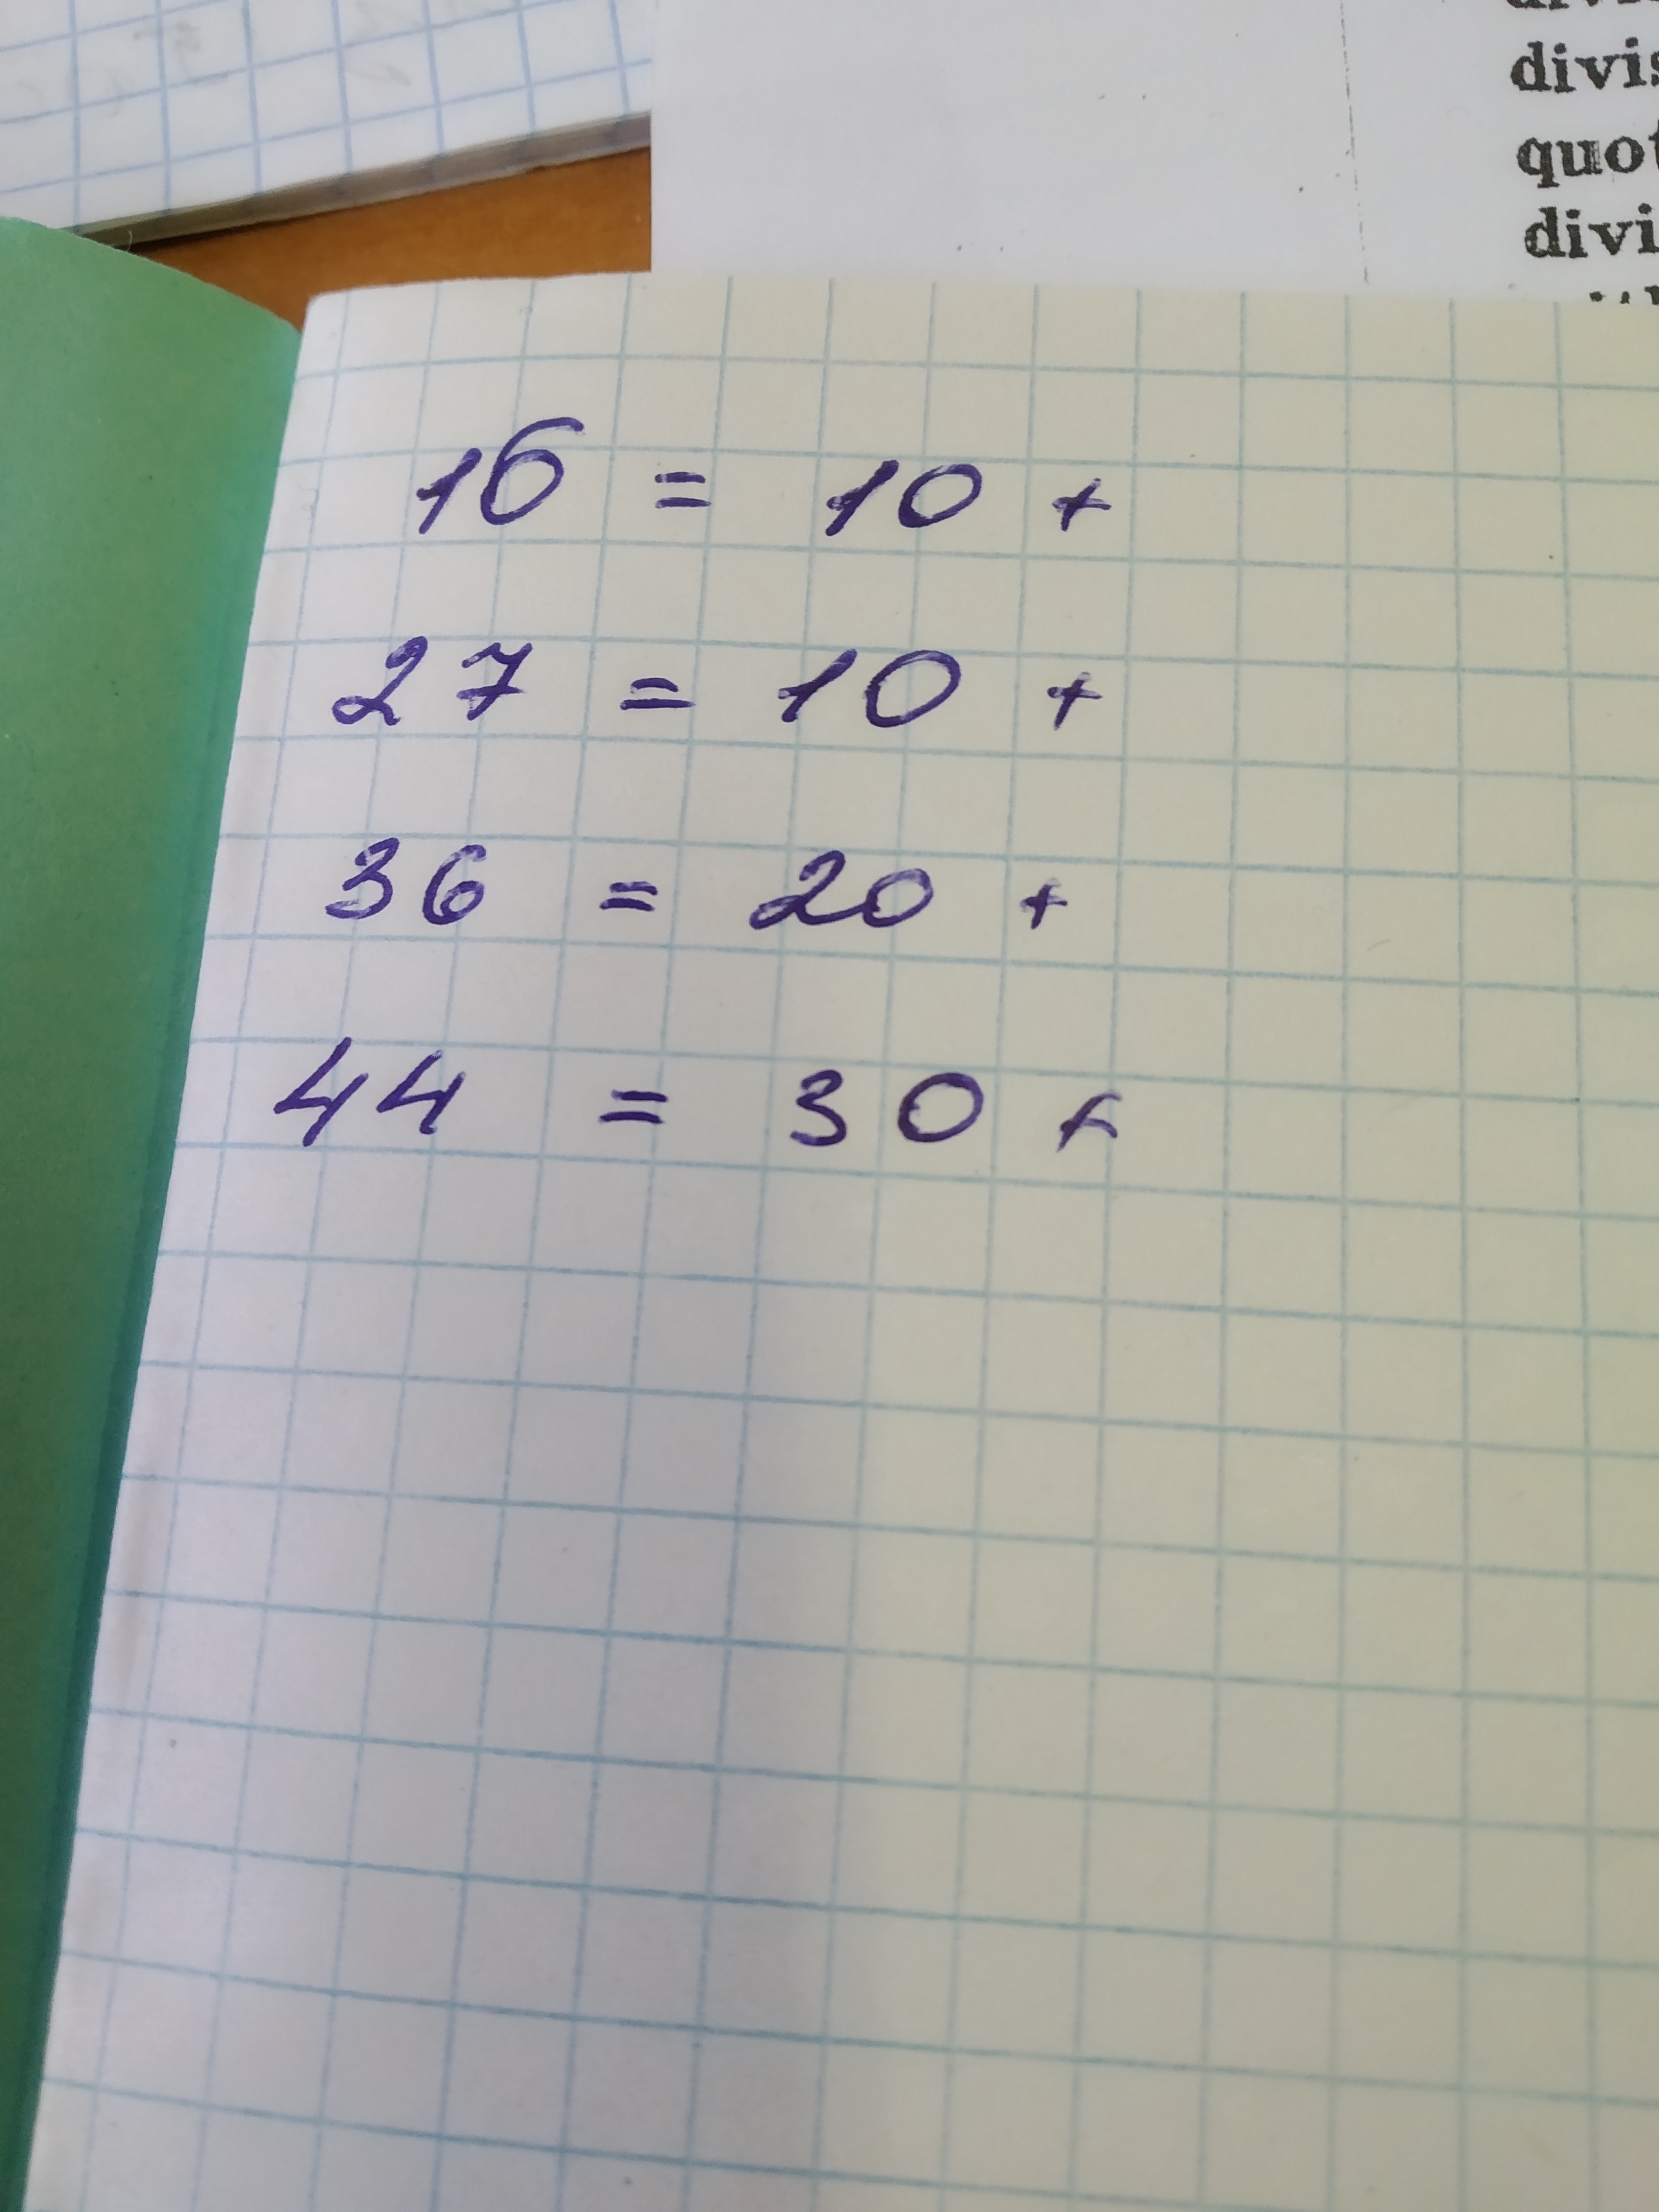 divis
quot
divi
16 = 10 +
27 = 10 +
36 = 20 +
44 = 30 +